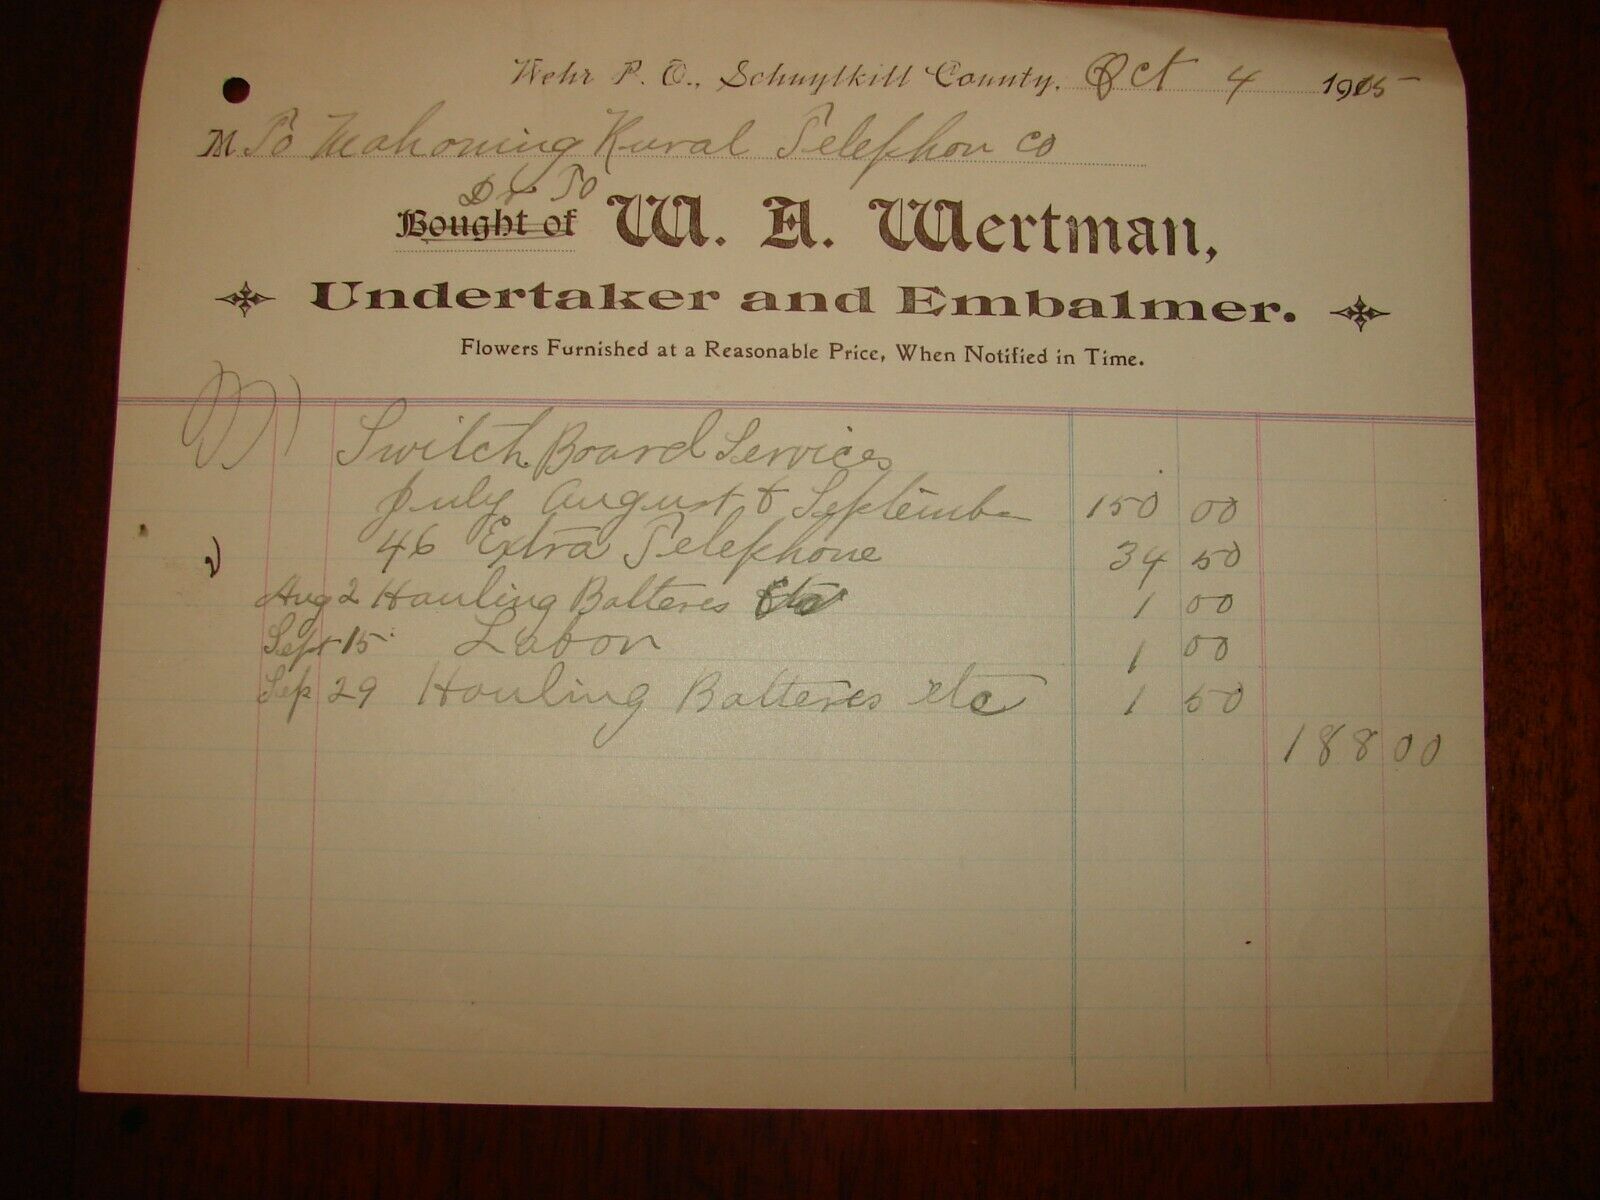 Wehr P. O., Schuylkill County, Oct 4 1915
M To Mahoning Rural Telephon Co
Dr To
Bought of W. A. Wertman,
Undertaker and Embalmer.
Flowers Furnished at a Reasonable Price, When Notified in Time.
Switch Board Services
July August & Septembe 150 00
46 Extra Telephone 34 50
Aug 2 Hauling Batteres Etc 1 00
Sept 15 Labor 1 00
Sep 29 Hauling Batteres etc 1 50
188 00